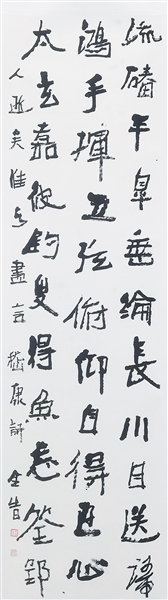 流磻平皋垂綸長川目送歸
鴻手揮五弦俯仰自得遊心
太玄嘉彼釣叟得魚忘筌郢
人逝矣誰與盡言嵇康詩